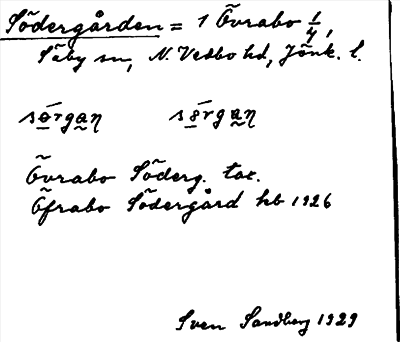 Södergården = 1 Övrabo 1/4,
Säby sn, N. Vedbo hd, Jönk. l.
Övrabo Söderg. tax.
Öfrabo Södergård kb 1926
Sven Sandberg 1929